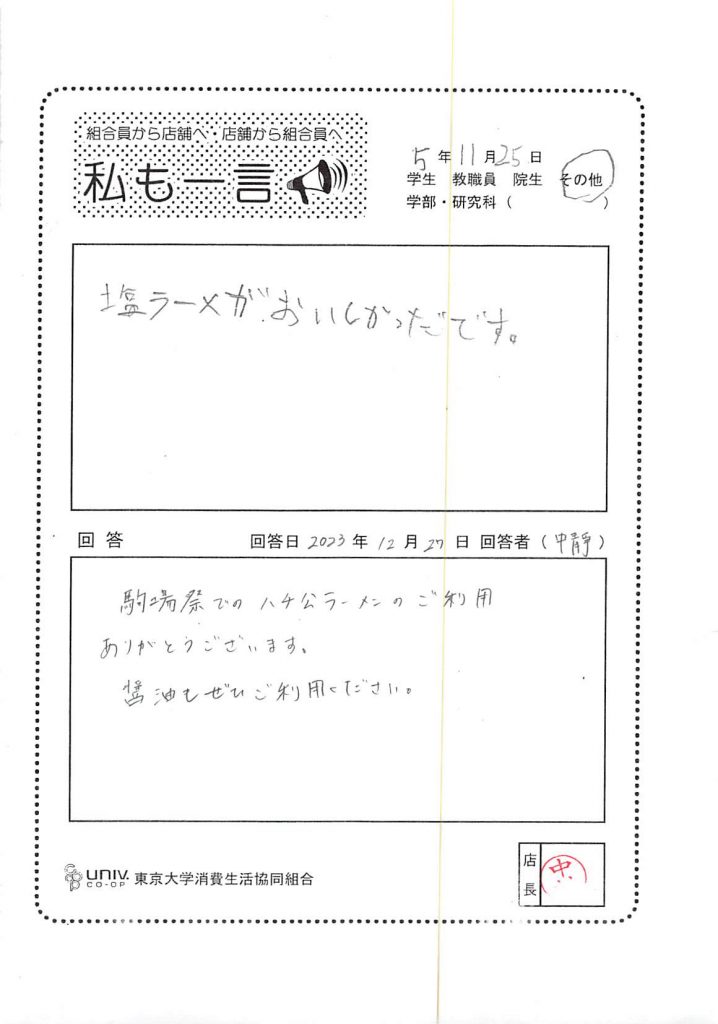 組合員から店舗へ・店舗から組合員へ
私も一言
5年11月25日
学生 教職員 院生 その他
学部・研究科( )
塩ラーメがおいしかっただです。
回答 回答日 2023年12月27日 回答者(中静)
駒場祭でのハチ公ラーメンのご利用
ありがとうございます。
醤油もぜひご利用ください。
店長
中
UNIV. CO-OP 東京大学消費生活協同組合